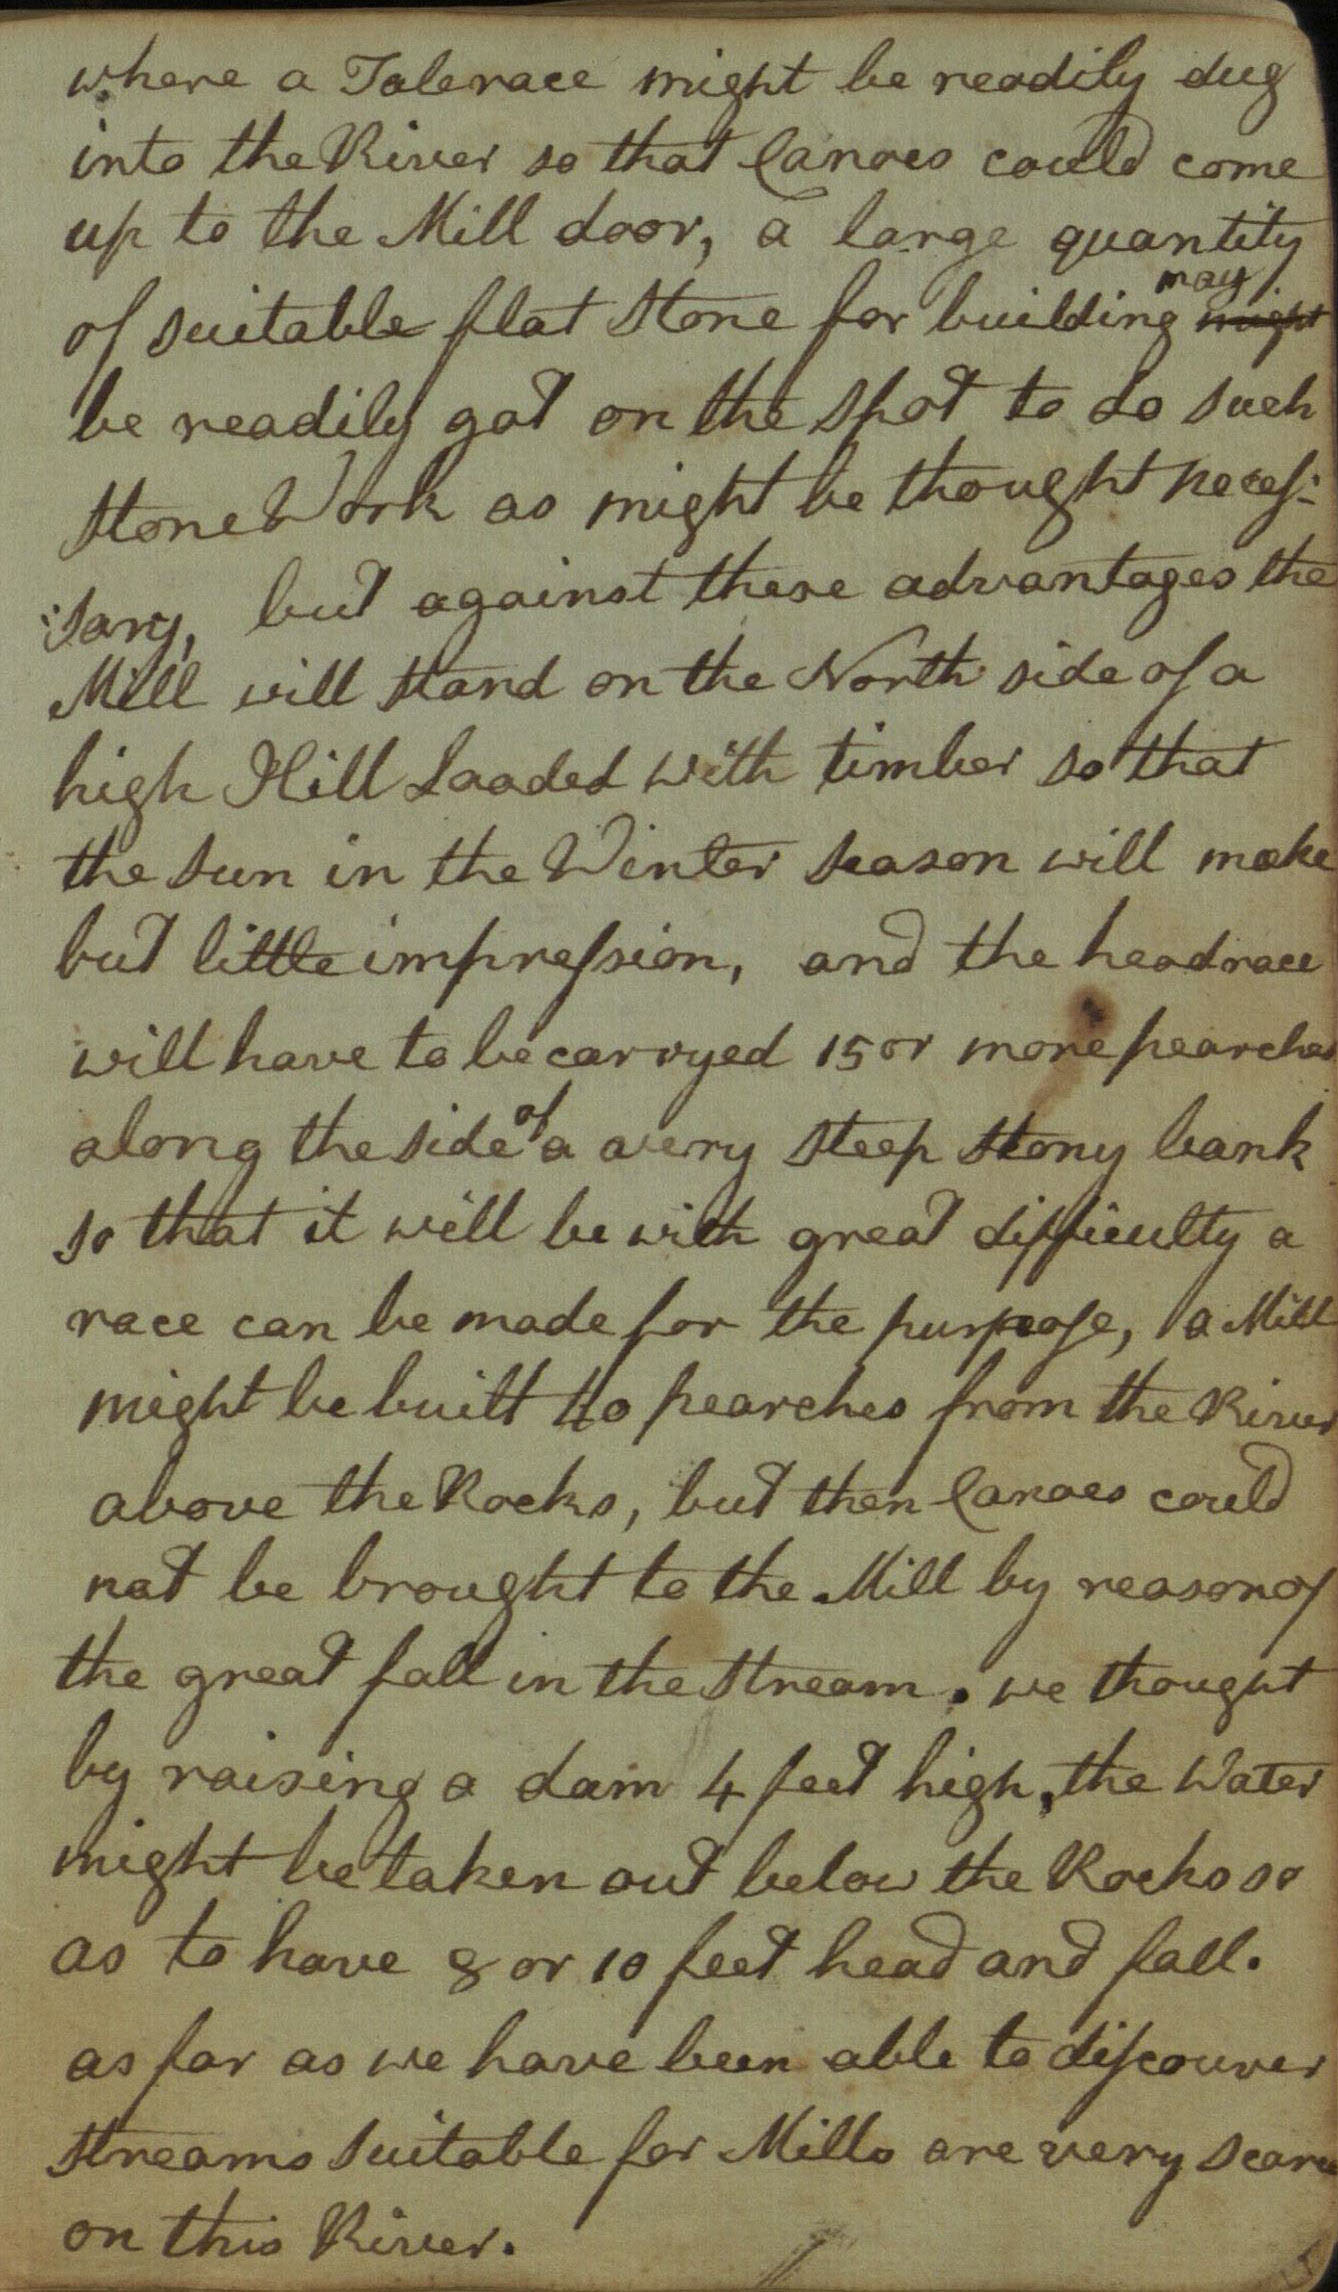 where a Talerace might be readily dug
into the River so that Canoes could come
up to the Mill door, a large quantity
of suitable flat stone for building may might
be readily got on the spot to do such
stone Work as might be thought necess:
:sary, but against these advantages the
Mill will stand on the North side of a
high Hill Loaded with timber so that
the sun in the Winter season will make
but little impression, and the headrace
will have to be carryed 15 or more pearches
along the side of a very steep stony bank
so that it will be with great difficulty a
race can be made for the purpose, a Mill
might be built 40 pearches from the River
above the Rocks, but then Canoes could
not be brought to the Mill by reason of
the great fall in the stream. we thought
by raising a dam 4 feet high, the Water
might be taken out below the Rocks so
as to have 8 or 10 feet head and fall.
as far as we have been able to discouver
streams suitable for Mills are very scarce
on this River.